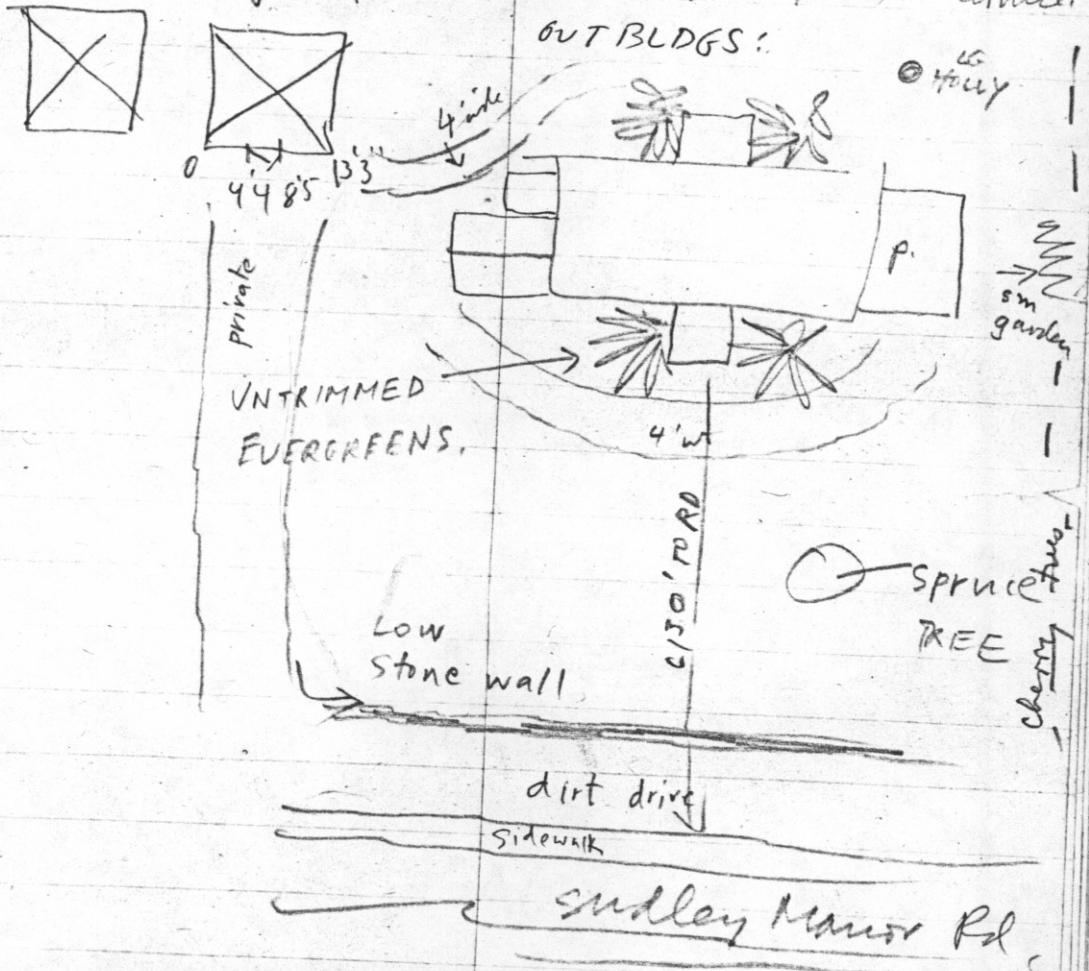 OUT BLDGS:
LG
HOLLY
4' wide
0
4'4
8'5
13'3"
private
p.
sm
garden
UNTRIMMED
EVERGREENS.
4' w
C 130' TO RD
Spruce
TREE
cherry trees
Low
Stone wall
dirt drive
sidewalk
Sudley Manor Rd